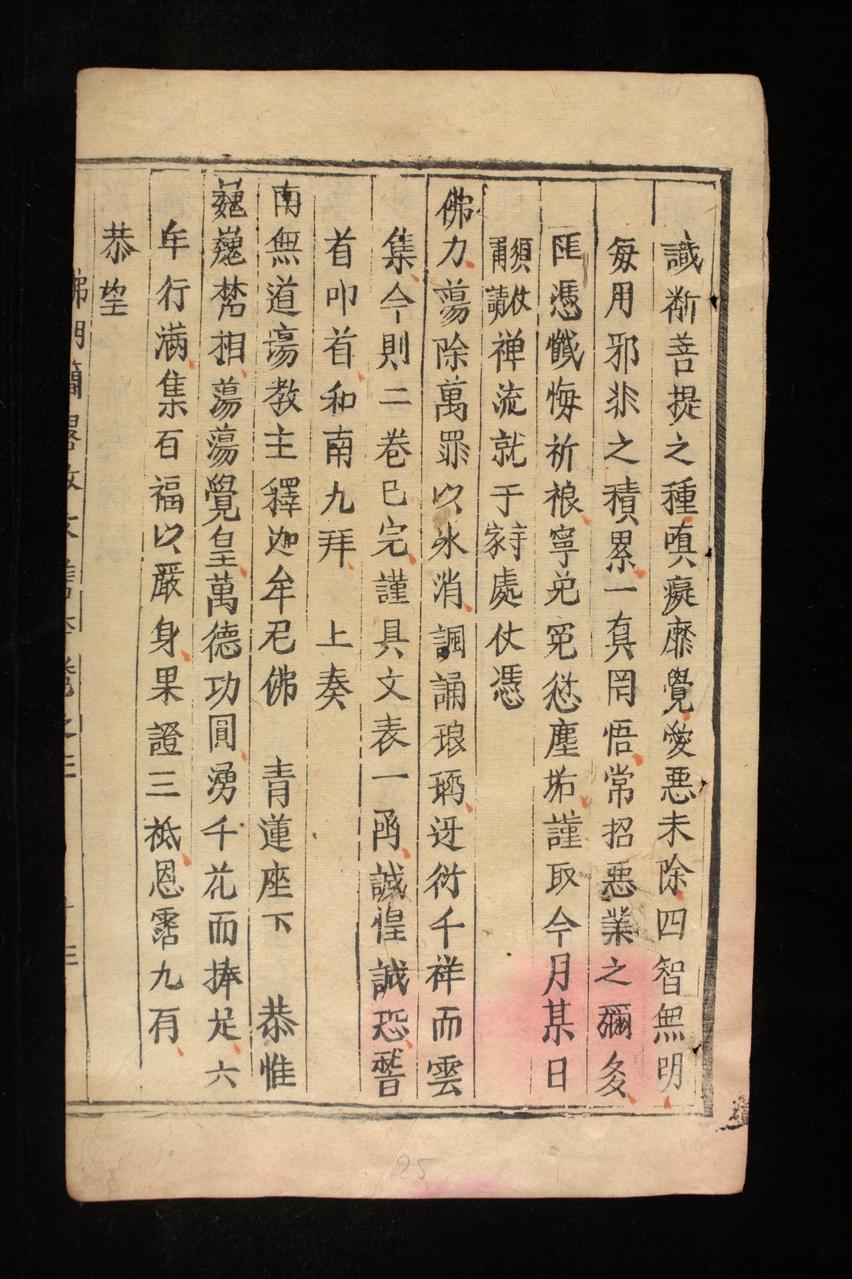 識斷菩提之種嗔癡靡覺愛惡未除四智無明
每用邪非之積累一真罔悟常招惡業之彌多
匪憑懺悔祈禳寧免冤愆塵垢謹取今月某日
須仗
甫請
禅流就于
寺
家
處仗憑
佛力蕩除萬罪以氷消諷誦琅琊迓衍千祥而雲
集今則二卷巳完謹具文表一凾誠惶誠恐䭫
首叩首和南九拜 上奏
南無道塲教主釋迦牟尼佛 青蓮座下 恭惟
巍巍梵相蕩蕩覺皇萬德功圓湧千花而捧足六
年行满集百福以嚴身果證三祇恩霑九有
恭望
佛門
卷之三